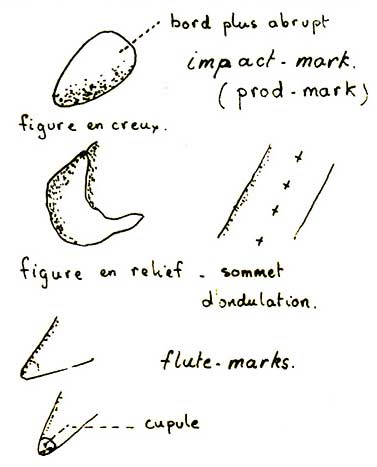 bord plus abrupt
impact-mark.
(prod-mark)
figure en creux.
figure en relief - sommet
d'ondulation.
flute-marks.
cupule